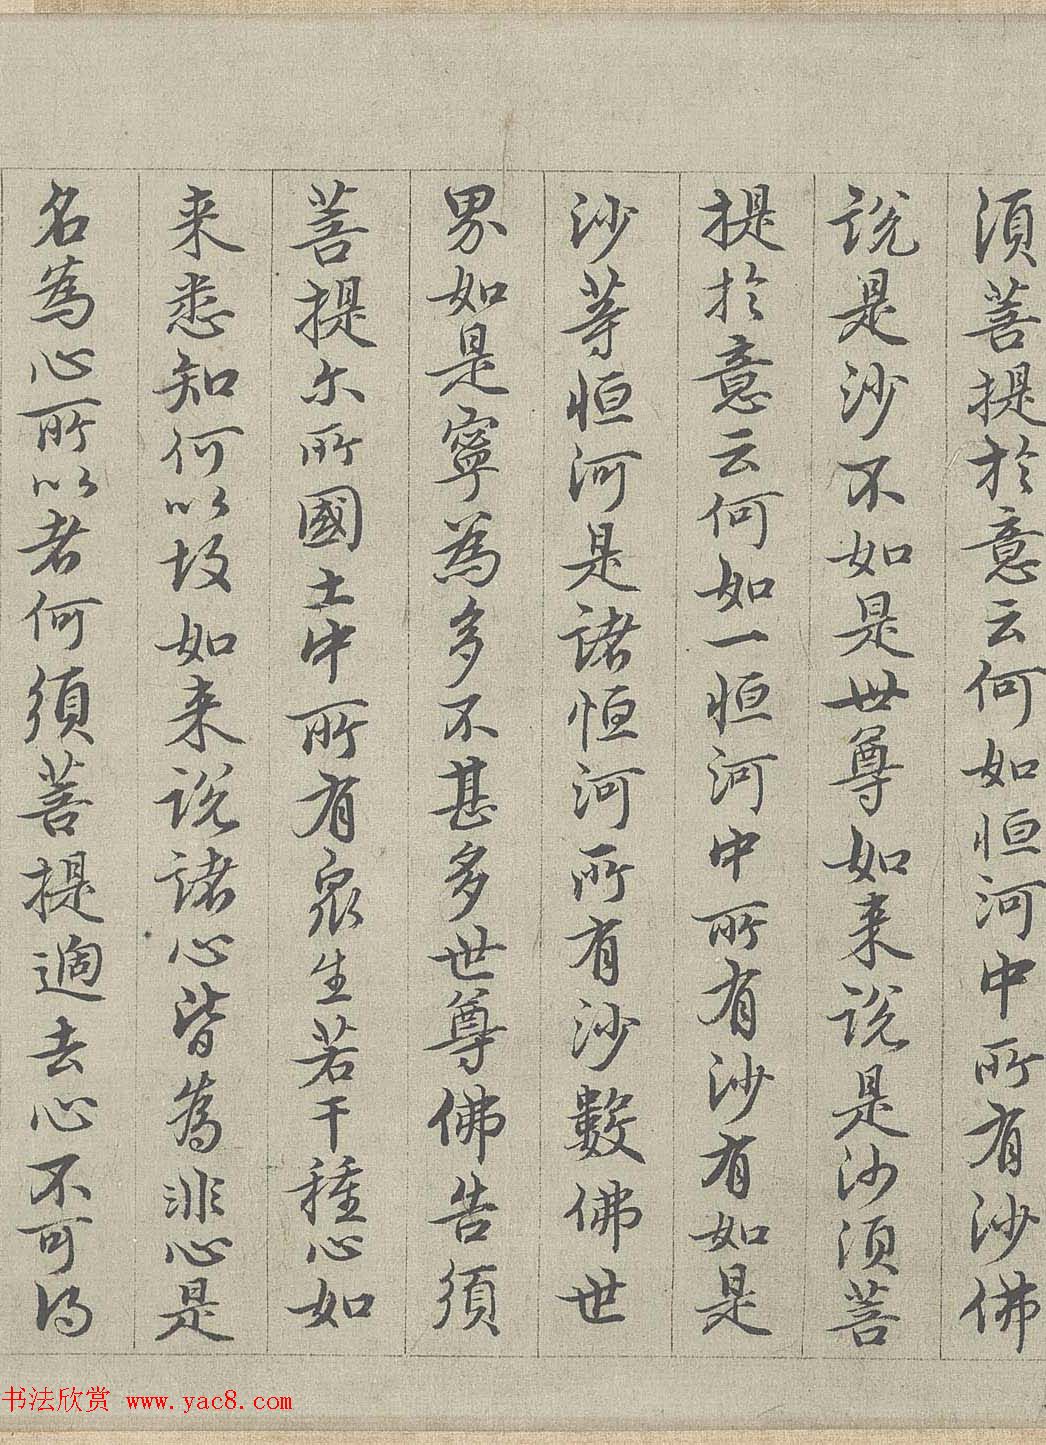 須菩提於意云何如恒河中所有沙佛
説是沙不如是世尊如来説是沙須菩
提於意云何如一恒河中所有沙有如是
沙等恒河是諸恒河所有沙數佛世
界如是寧為多不甚多世尊佛告須
菩提尔所國土中所有衆生若干種心如
来悉知何以故如来説諸心皆為非心是
名為心所以者何須菩提過去心不可得
书法欣赏 www.yac8.com